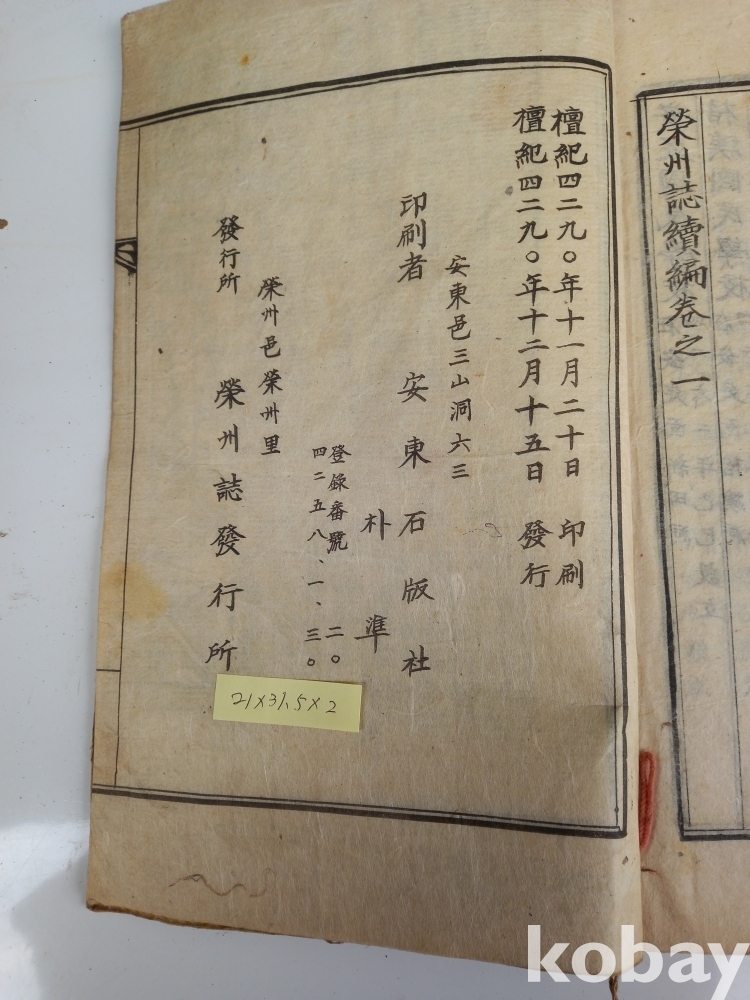 榮州誌續編卷之一
檀紀四二九〇年十一月二十日 印刷
檀紀四二九〇年十二月十五日 發行
安東邑三山洞六三
印刷者 安東石版社
朴準
登錄番號 二〇
四二五八、一、三〇
榮州邑榮州里
發行所 榮州誌發行所
21×31.5×2
kobay